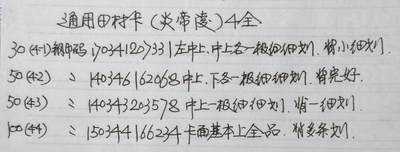 通用田村卡（炎帝陵）4全
30(4-1)背甲码170341207331左中上.中上各一极细细划.背小细划.
50(4-2) ：140346162068中上.下各一极细划.背完好.
50(4-3) ：140343203578中上一极细细划.背一细划.
100(4-4) ：150344166234卡面基本上全品.背多条划.